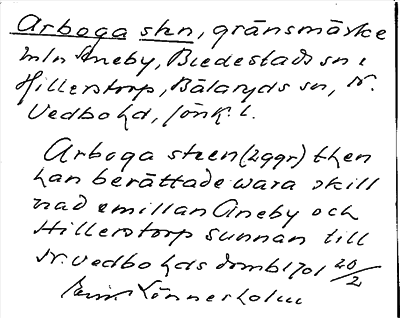 Arboga sten, gränsmärke
mln Aneby, Bredestads sn &
Hillerstorp, Bälaryds sn, N.
Vedbo hd, Jönk. l.
Arboga steen (2 ggr) then
han berättade wara skill
nad emillan Aneby och
Hillerstorp sunnan till
N. Vedbo hds domb 1701 20/2
Linnerholm